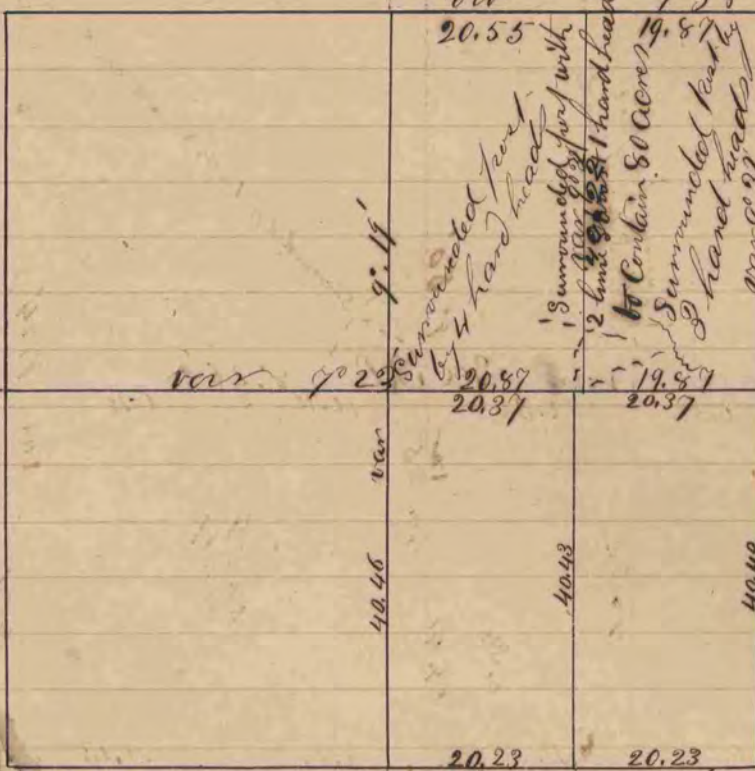 20.55 19.87
Surrounded post
by 4 hard heads
Surrounded post with
2 lime & 1 hard head
to Contain 80 acres
Surrounded Post by
3 hard heads
9° 19'
var 7° 23'
20.87 19.87
20.37 20.37
var
40.46 40.43 40.40
20.23 20.23